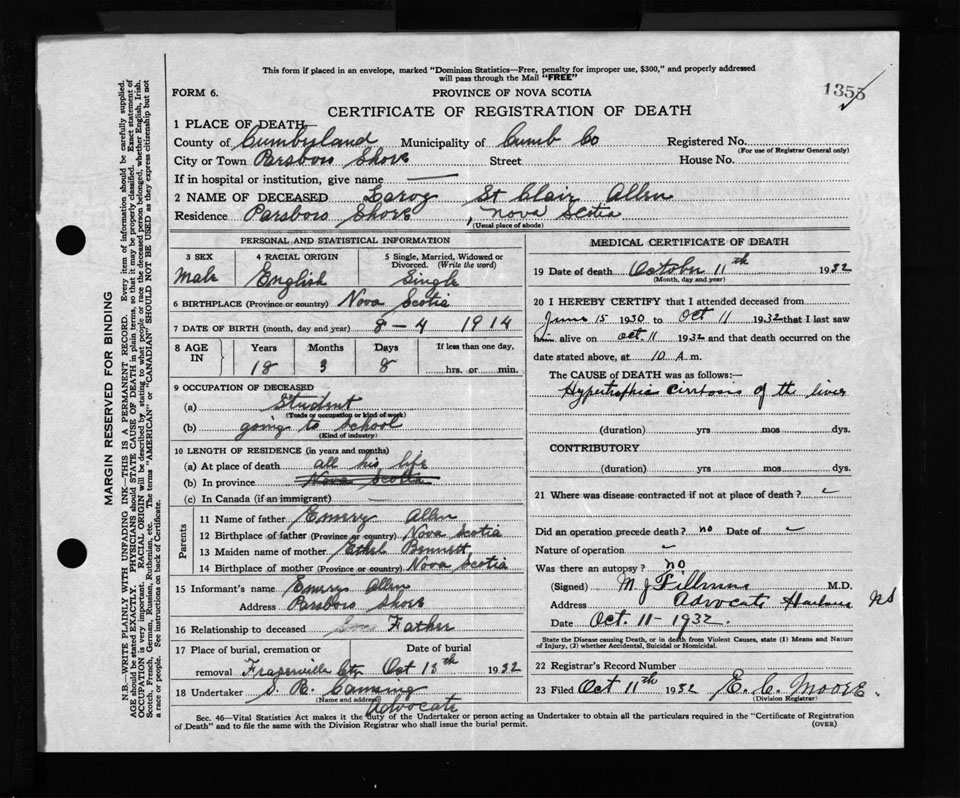 This form if placed in an envelope, marked "Dominion Statistics—Free, penalty for improper use, $300," and properly addressed
will pass through the Mail "FREE"
FORM 6.
PROVINCE OF NOVA SCOTIA
1353
CERTIFICATE OF REGISTRATION OF DEATH
1 PLACE OF DEATH—
County of Cumberland Municipality of Cumb Co Registered No.
(For use of Registrar General only)
City or Town Parsboro Shore Street House No.
If in hospital or institution, give name —
2 NAME OF DECEASED St Clair Allen
Residence Parsboro Shore, Nova Scotia
(Usual place of abode)
PERSONAL AND STATISTICAL INFORMATION
3 SEX 4 RACIAL ORIGIN 5 Single, Married, Widowed or
Divorced. (Write the word)
Male English Single
6 BIRTHPLACE (Province or country) Nova Scotia
7 DATE OF BIRTH (month, day and year) 8 – 4 1914
8 AGE IN Years Months Days If less than one day,
18 3 8 hrs. or min.
9 OCCUPATION OF DECEASED
(a) Student
(Trade or occupation or kind of work)
(b) going to school
(Kind of industry)
10 LENGTH OF RESIDENCE (in years and months)
(a) At place of death all his life
(b) In province Nova Scotia
(c) In Canada (if an immigrant) —
Parents
11 Name of father Emery Allen
12 Birthplace of father (Province or country) Nova Scotia
13 Maiden name of mother Ethel Bennett
14 Birthplace of mother (Province or country) Nova Scotia
15 Informant's name Emery Allen
Address Parsboro Shore
16 Relationship to deceased Father
17 Place of burial, cremation or Date of burial
removal Fraserville Cty Oct 13th 1932
18 Undertaker S. R.
(Name and address)
Advocate
MEDICAL CERTIFICATE OF DEATH
19 Date of death October 11th 1932
(Month, day and year)
20 I HEREBY CERTIFY that I attended deceased from
June 15 1930 to Oct 11 1932 that I last saw
him alive on Oct. 11 1932 and that death occurred on the
date stated above, at 10 A.m.
The CAUSE of DEATH was as follows:—
Hypertrophic cirrhosis of the liver
(duration) yrs mos dys.
CONTRIBUTORY
(duration) yrs mos dys.
21 Where was disease contracted if not at place of death?
Did an operation precede death? no Date of –
Nature of operation –
Was there an autopsy? no
(Signed) M. J. Fillmore M.D.
Address Advocate Harbour NS
Date Oct. 11 - 1932.
State the Disease causing Death, or in death from Violent Causes, state (1) Means and Nature
of Injury, (2) whether Accidental, Suicidal or Homicidal.
22 Registrar's Record Number
23 Filed Oct 11th 1932 E. C. Moore.
(Division Registrar)
Sec. 46—Vital Statistics Act makes it the duty of the Undertaker or person acting as Undertaker to obtain all the particulars required in the "Certificate of Registration
of Death" and to file the same with the Division Registrar who shall issue the burial permit. (OVER)
MARGIN RESERVED FOR BINDING
N.B.—WRITE PLAINLY WITH UNFADING INK—THIS IS A PERMANENT RECORD. Every item of information should be carefully supplied.
AGE should be stated EXACTLY. PHYSICIANS should STATE CAUSE OF DEATH in plain terms, so that it may be properly classified. Exact statement of
OCCUPATION is very important. RACIAL ORIGIN will be described by stating to what people or race the deceased person belonged, whether English, Irish,
Scotch, French, German, Russian, Ruthenian, etc. The terms "AMERICAN" or "CANADIAN" SHOULD NOT BE USED as they express citizenship but not
a race or people. See instructions on back of Certificate.